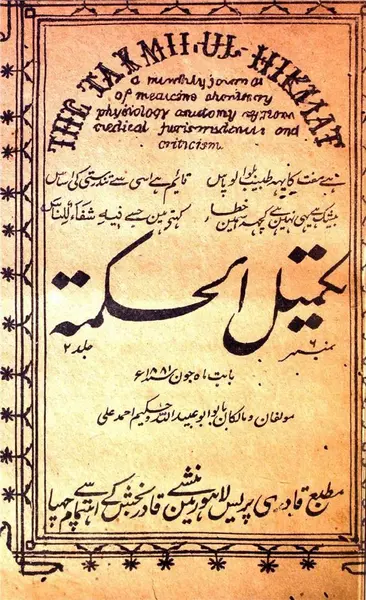 THE TAKMIL-UL-HIKMAT
a monthly journal
of medicine chemistry
physiology anatomy
medical jurisprudence and
criticism
قائم ہے اسی سے تندرستی کی اساس
بیشک ہے یہی نہین ہے کچھ اسمین خطا
کہتے ہین جسے فیہ شفاءٌ للناس
تکمیل الحکمة
نمبر ۶
جلد ۲
بابت ماہ جون سنہ ۱۸۸۱ء
مولفان و مالکان بابو ابو عبید اللہ و حکیم احمد علی
مطبع قادری پریس لاہور مین منشے قادر بخش کے اہتمام سے چھپا